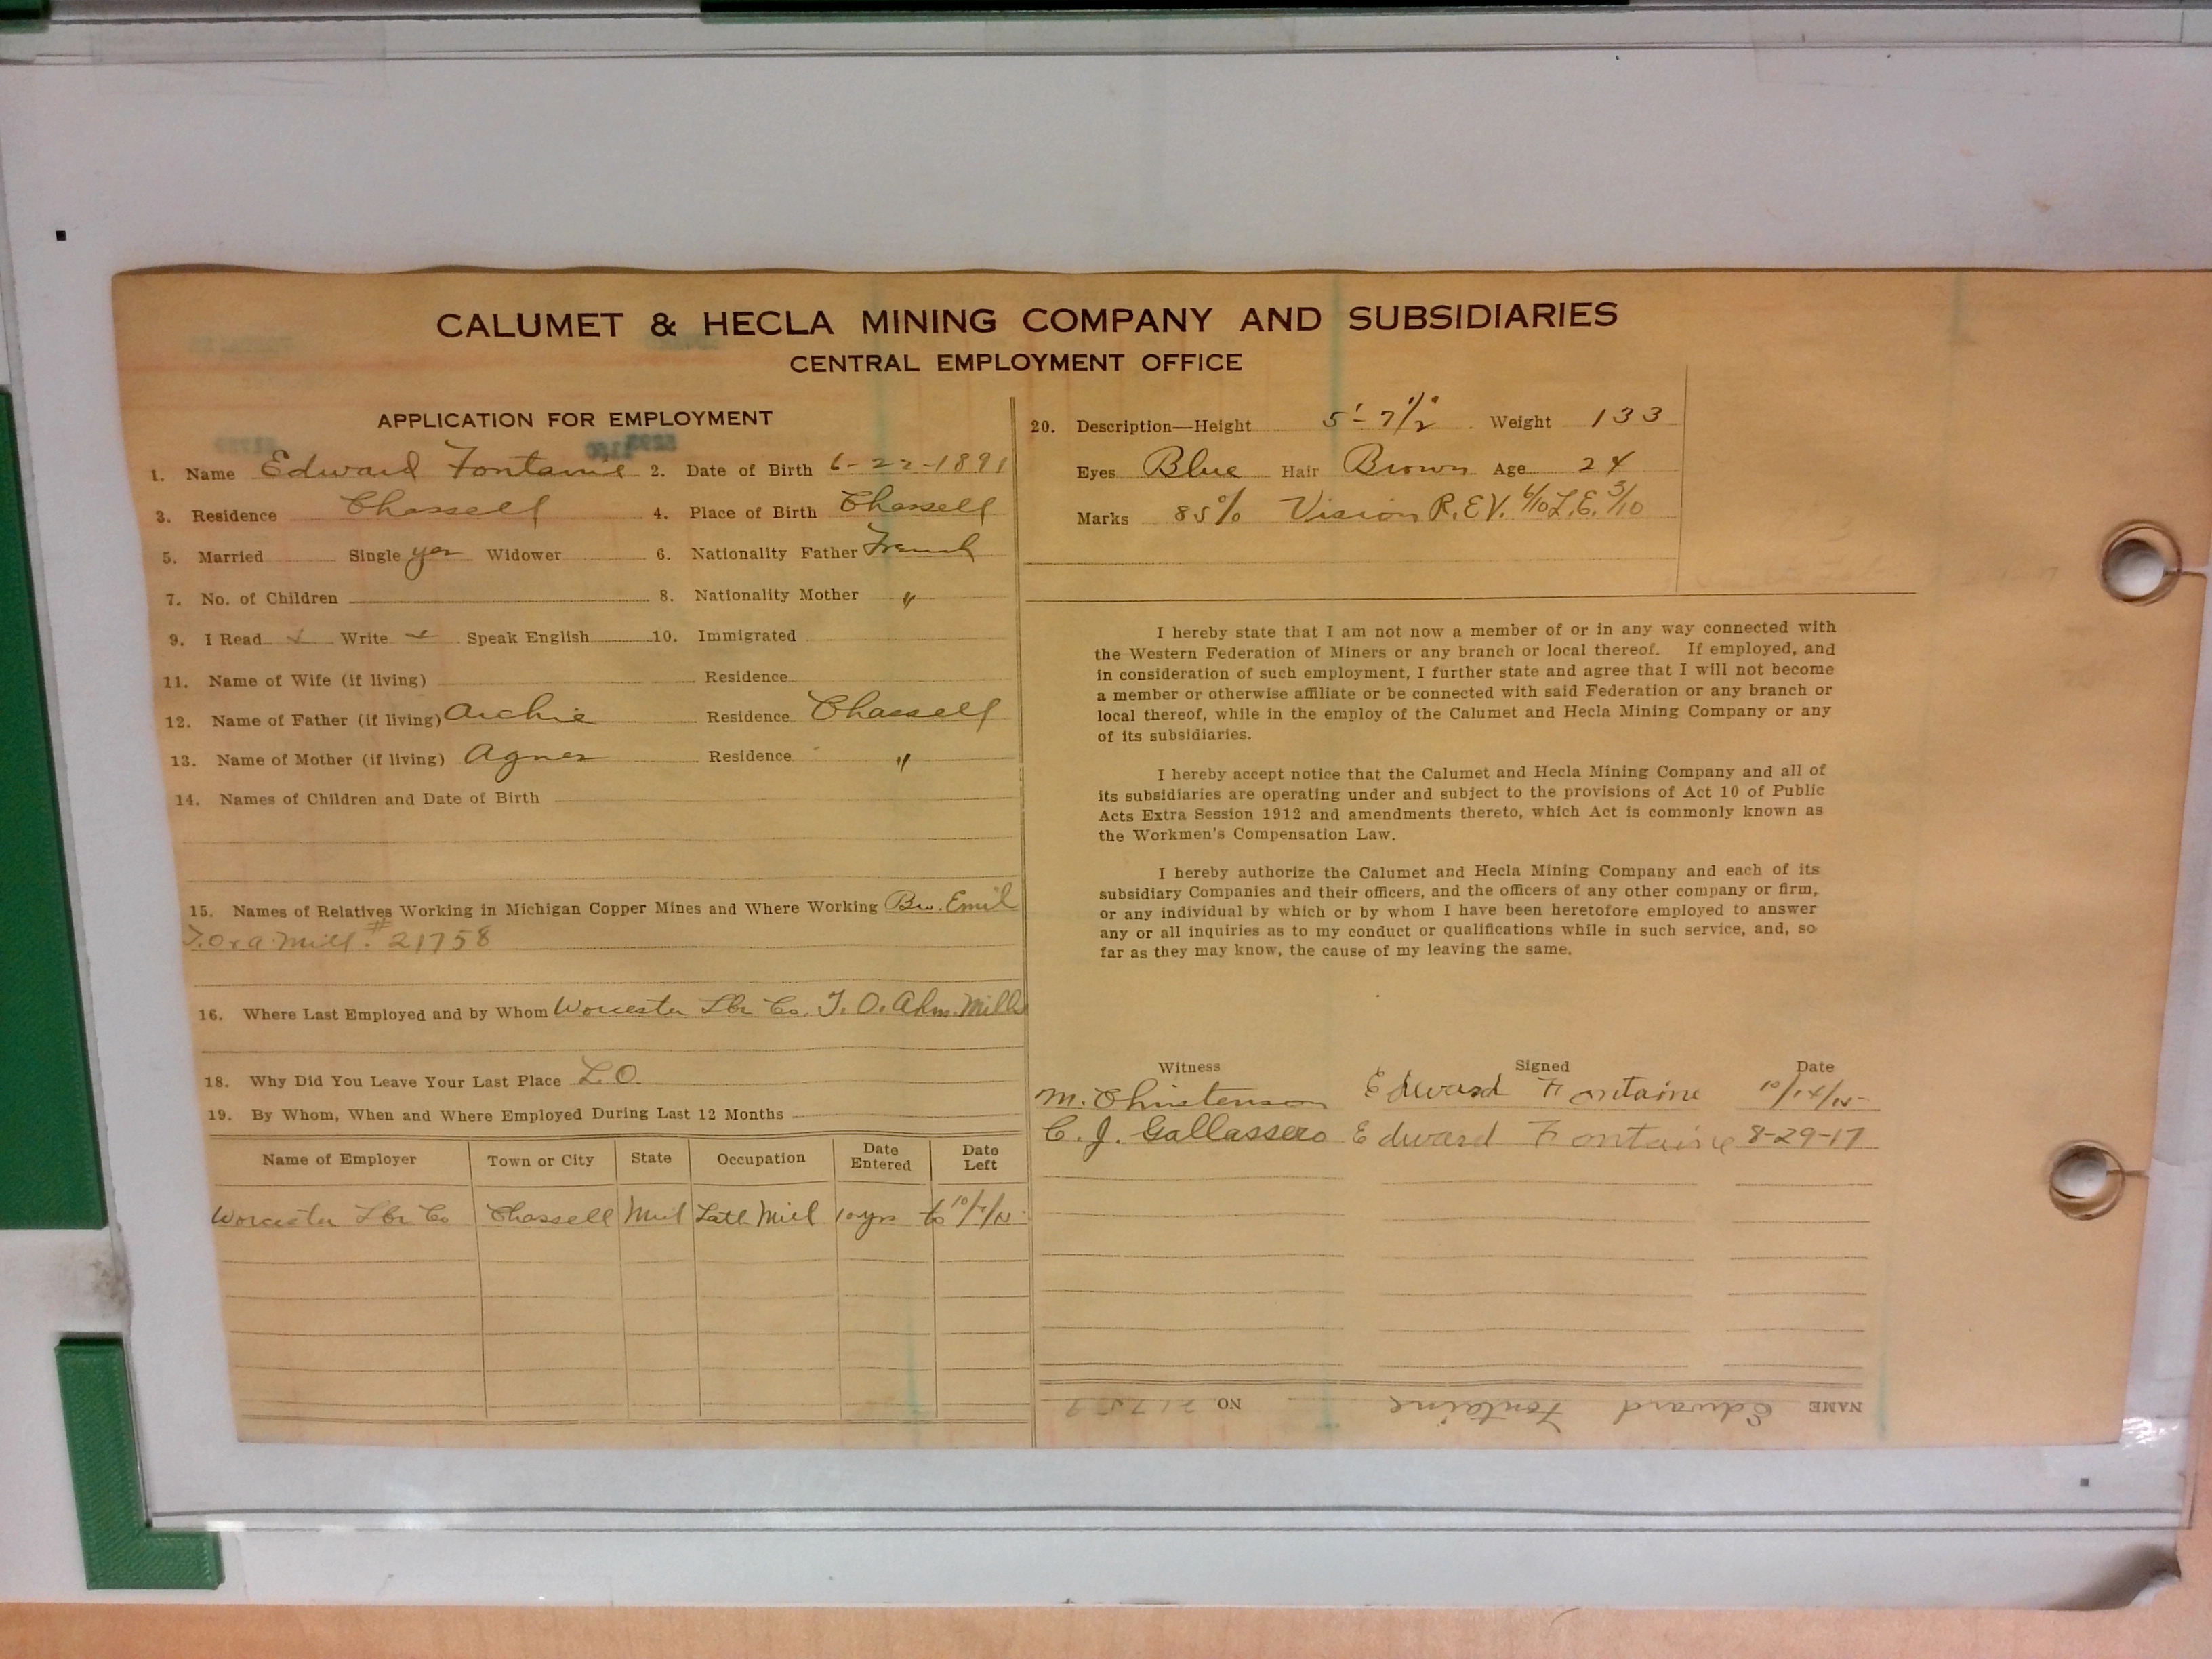 CALUMET & HECLA MINING COMPANY AND SUBSIDIARIES
CENTRAL EMPLOYMENT OFFICE
APPLICATION FOR EMPLOYMENT
1. Name Edward Fontaine 2. Date of Birth 6-22-1891
3. Residence Chassell 4. Place of Birth Chassell
5. Married Single yes Widower 6. Nationality Father French
7. No. of Children 8. Nationality Mother "
9. I Read ✓ Write ✓ Speak English 10. Immigrated
11. Name of Wife (if living) Residence
12. Name of Father (if living) Archie Residence Chassell
13. Name of Mother (if living) Agnes Residence "
14. Names of Children and Date of Birth
15. Names of Relatives Working in Michigan Copper Mines and Where Working Bro. Emil
Mill. # 21758
16. Where Last Employed and by Whom Worcester Lbr Co. T. O. Ahm. Mills
18. Why Did You Leave Your Last Place L.O.
19. By Whom, When and Where Employed During Last 12 Months
Name of Employer Town or City State Occupation Date Entered Date Left
Worcester Lbr Co Chassell Lath Mill 10 yrs to
20. Description—Height 5'-7 1/2" Weight 133
Eyes Blue Hair Brown Age 24
Marks 85% Vision R.EV. 6/10 L.E. 5/10
I hereby state that I am not now a member of or in any way connected with
the Western Federation of Miners or any branch or local thereof. If employed, and
in consideration of such employment, I further state and agree that I will not become
a member or otherwise affiliate or be connected with said Federation or any branch or
local thereof, while in the employ of the Calumet and Hecla Mining Company or any
of its subsidiaries.
I hereby accept notice that the Calumet and Hecla Mining Company and all of
its subsidiaries are operating under and subject to the provisions of Act 10 of Public
Acts Extra Session 1912 and amendments thereto, which Act is commonly known as
the Workmen's Compensation Law.
I hereby authorize the Calumet and Hecla Mining Company and each of its
subsidiary Companies and their officers, and the officers of any other company or firm,
or any individual by which or by whom I have been heretofore employed to answer
any or all inquiries as to my conduct or qualifications while in such service, and, so
far as they may know, the cause of my leaving the same.
Witness Signed Date
M. Christenson Edward Fontaine 10/14/15
C. J. Gallassero Edward Fontaine 8-29-17
NAME Edward Fontaine NO. 21759